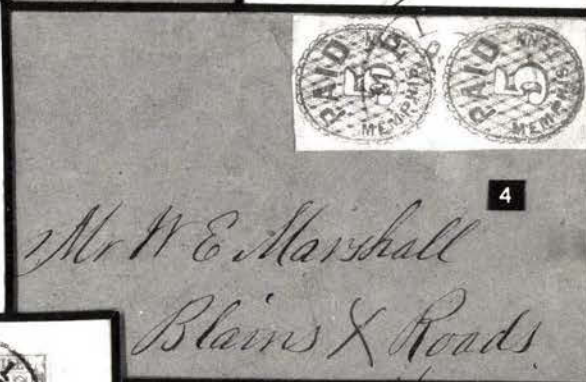 PAID 5 MEMPHIS TENN
PAID 5 MEMPHIS TENN
4
Mr W E Marshall
Blains X Roads